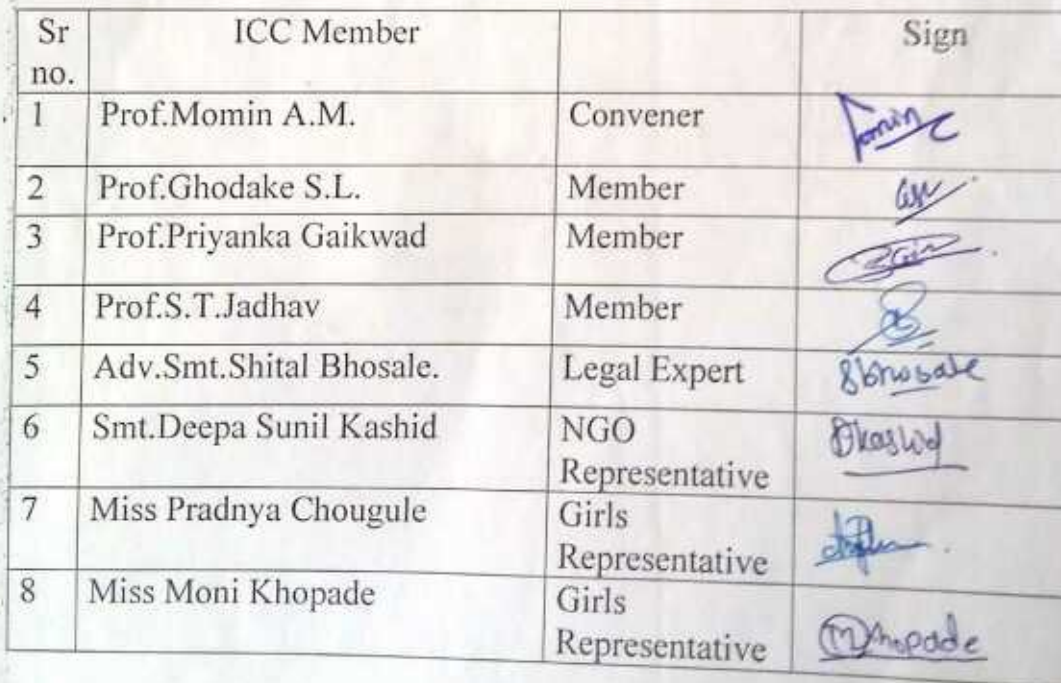 Sr no. ICC Member Sign
1 Prof.Momin A.M. Convener Momin
2 Prof.Ghodake S.L. Member
3 Prof.Priyanka Gaikwad Member
4 Prof.S.T.Jadhav Member
5 Adv.Smt.Shital Bhosale. Legal Expert Sbhosale
6 Smt.Deepa Sunil Kashid NGO Representative Dkashid
7 Miss Pradnya Chougule Girls Representative
8 Miss Moni Khopade Girls Representative Mkhopade